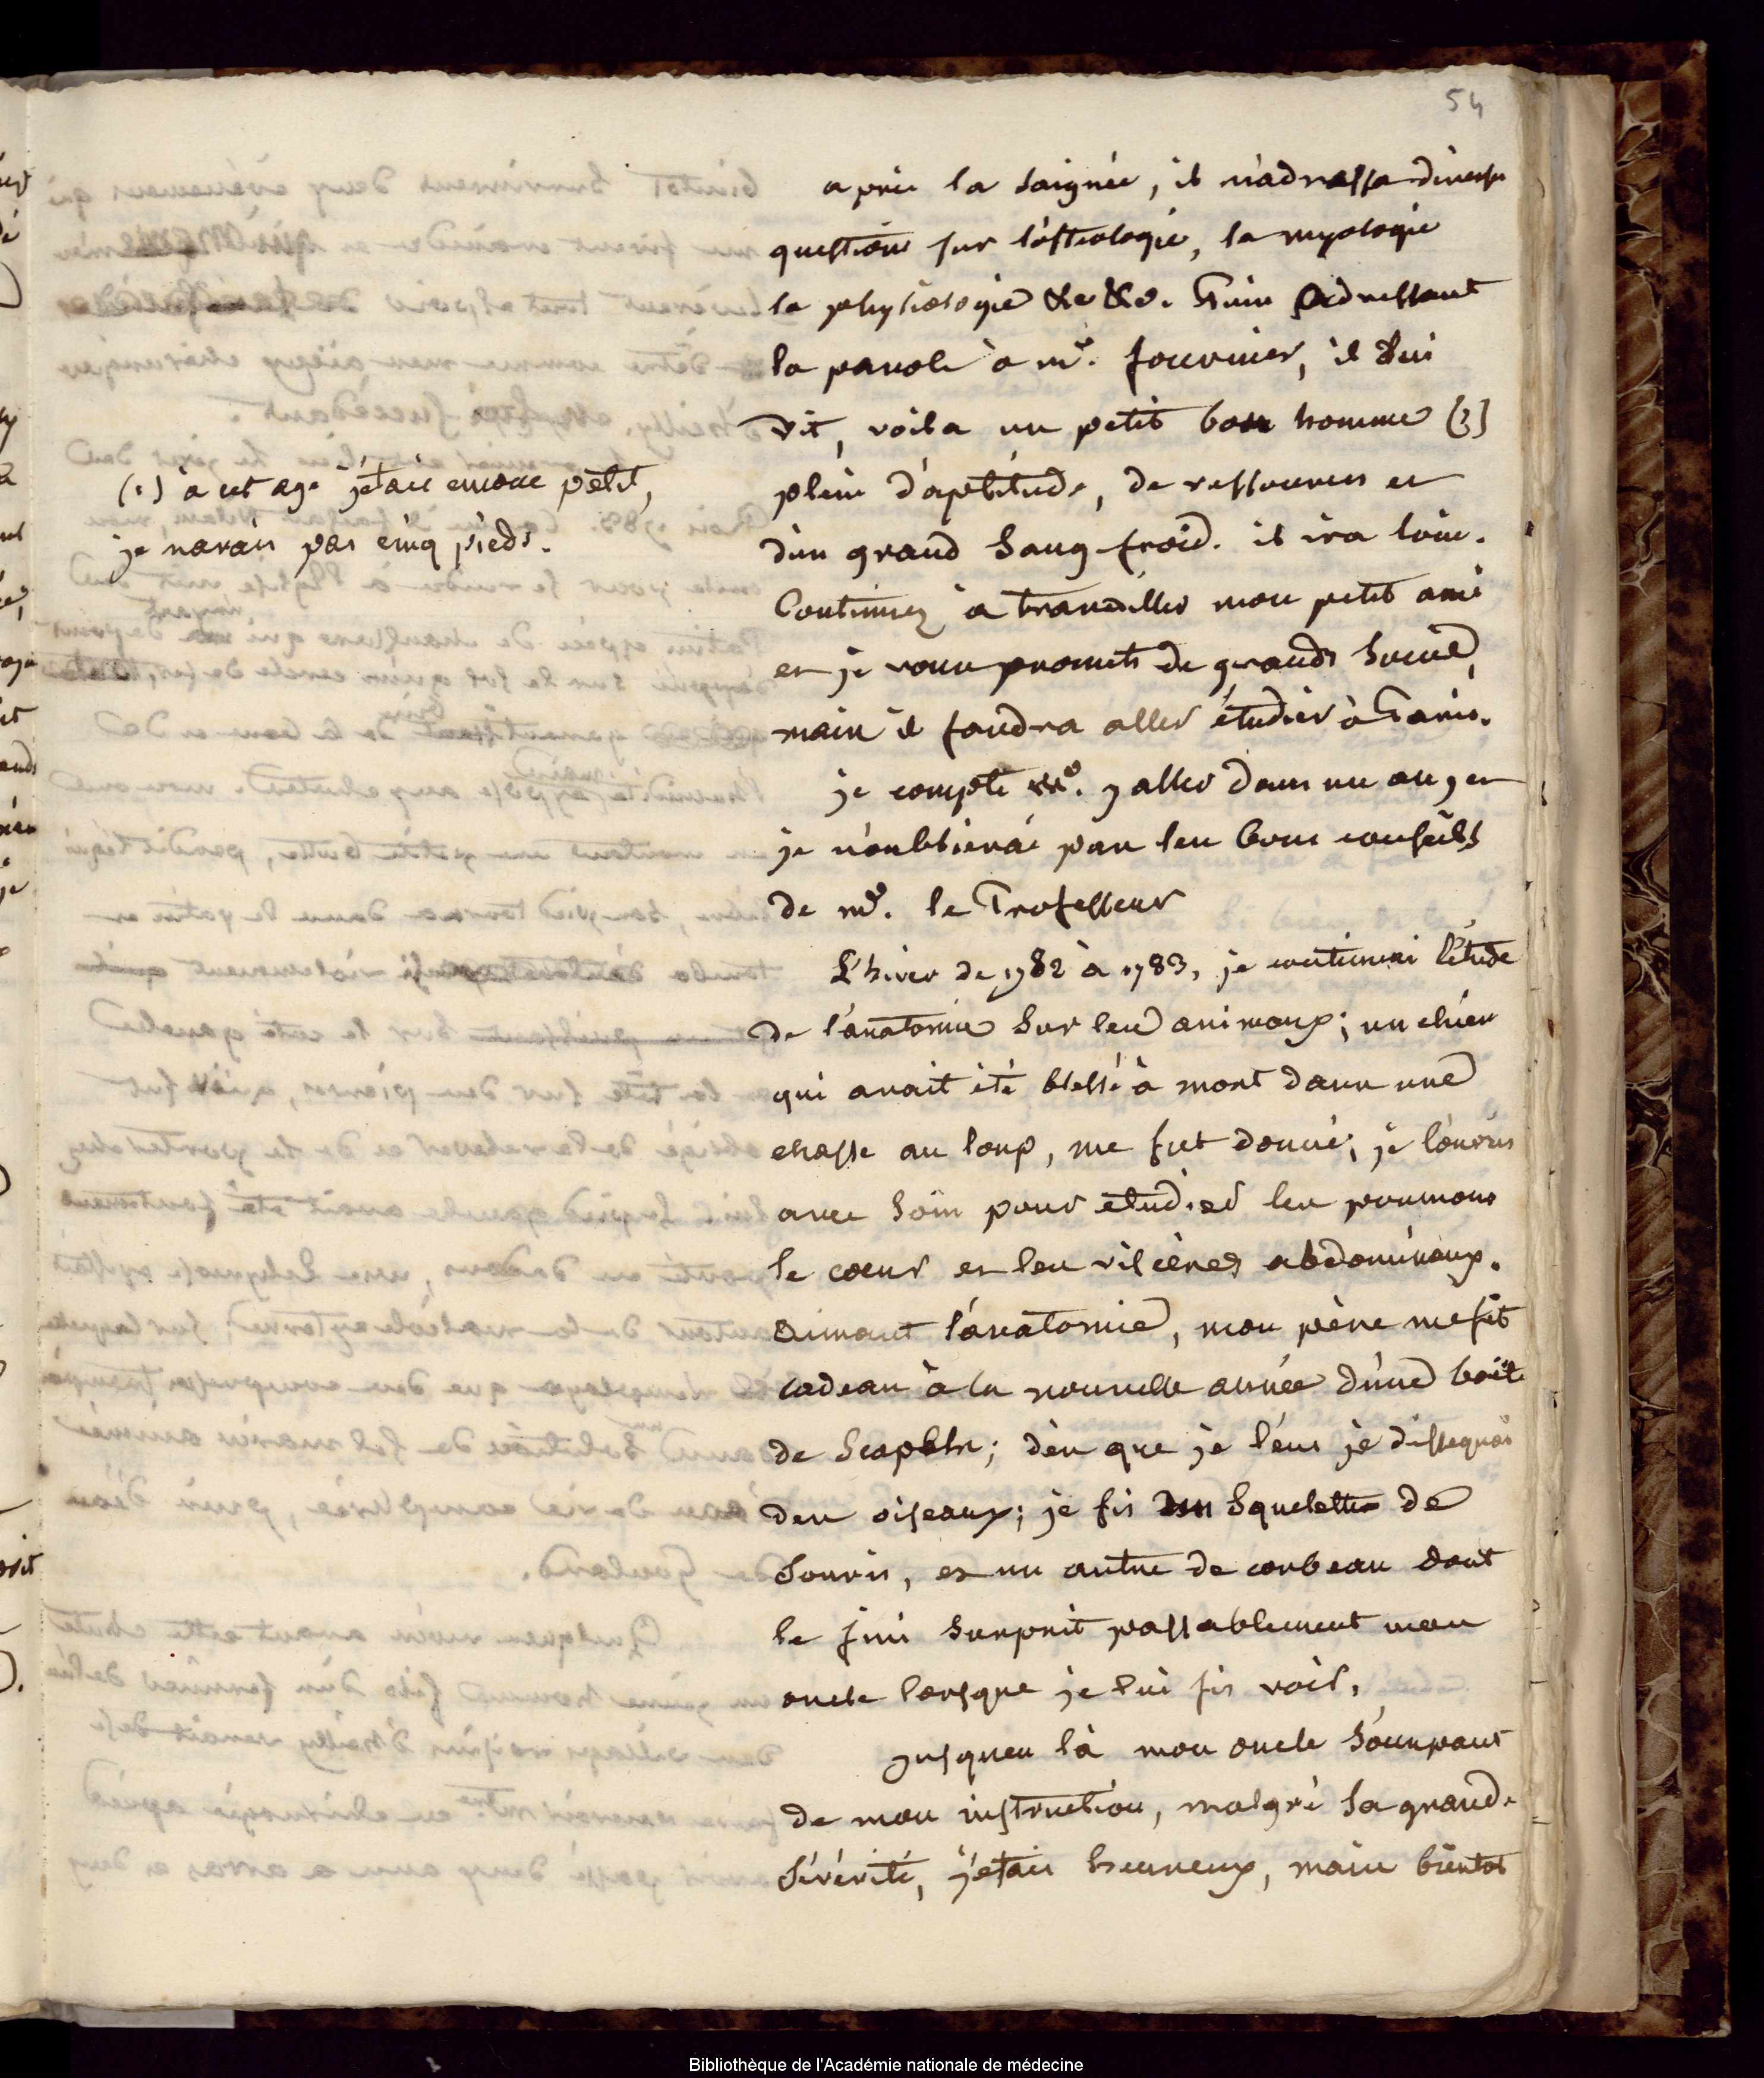 54
après la saignée, il m'adressa diverses
questions sur l'ostéologie, la myologie
la physiologie &c &c. Puis adressant
la parole à mr. fournier, il lui
dit, voila un petit bon homme (1)
plein d'aptitude, de ressources et
d'un grand sang-froid. il ira loin.
Continuez à travailler mon petit ami
et je vous promets de grands succès,
mais il faudra aller étudier à Paris.
je compte mr. y aller dans un an, et
je n'oublierai pas les bons conseils
de mr. le Professeur
L'hiver de 1782 à 1783, je continuai l'étude
de l'anatomie sur les animaux; un chien
qui avait été blessé à mort dans une
chasse au loup, me fut donné; je l'ouvris
avec soin pour étudier les poumons
le cœur et les viscères abdominaux.
aimant l'anatomie, mon père me fit
cadeau à la nouvelle année d'une boîte
de scapels; dès que je l'eus je dissequai
des oiseaux; je fis un squelette de
souris, et un autre de corbeau dont
le fini surprit passablement mon
oncle lorsque je lui fis voir.
jusques là mon oncle s'occupant
de mon instruction, malgré sa grande
sévérité, j'étais heureux, mais bientot
(1) à cet age j'étais encore petit,
je n'avais pas cinq pieds.
Bibliothèque de l'Académie nationale de médecine